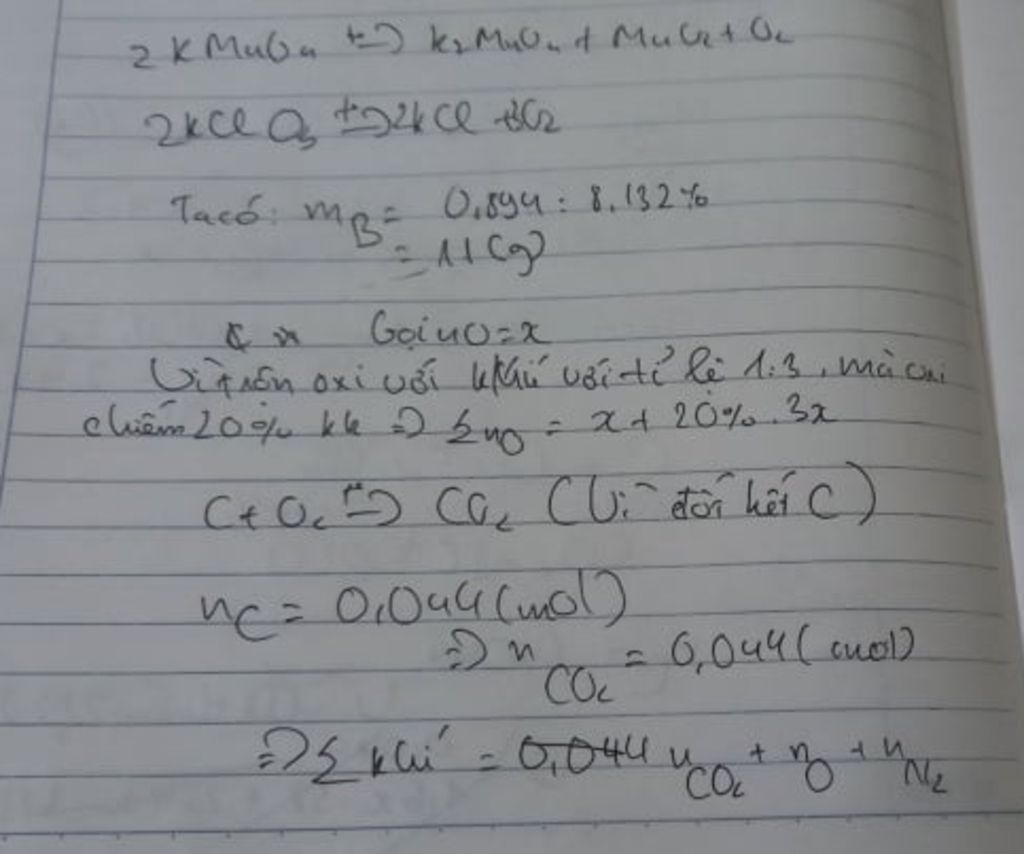 2KMnO4 t°=> K2MnO4 + MnO2 + O2
2KClO3 t°=> 2KCl + 3O2
Ta có: mB = 0,894 : 8,132%
= 11 (g)
Gọi nO = x
Vì trộn oxi với kk khí với tỉ lệ 1:3, mà oxi
chiếm 20% kk => ΣnO = x + 20%.3x
C + O2 t°=> CO2 (Vì đốt hết C)
nC = 0,044 (mol)
=> nCO2 = 0,044 (mol)
=> Σ khí = 0,044 nCO2 + nO + nN2